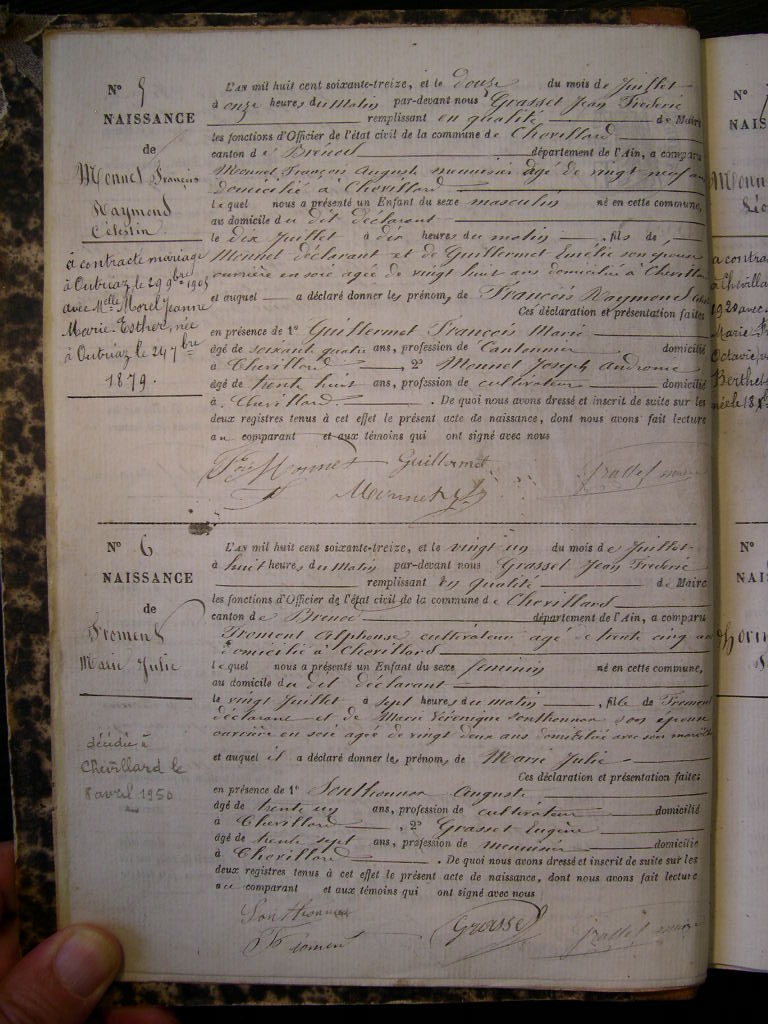 N° 5
NAISSANCE
de
Monnet François
Raymond
Célestin
à contracté mariage
à Outriaz le 29 9bre 1905
avec Melle Morel Jeanne
Marie-Esther, née
à Outriaz le 24 7bre
1879.
L'AN mil huit cent soixante-treize, et le douze du mois de Juillet
à onze heures du Matin par-devant nous Grasset Jean Frédéric
remplissant en qualité de Maire
les fonctions d'Officier de l'état civil de la commune de Chevillard
canton de Brénod département de l'Ain, a comparu
Monnet François Auguste menuisier agé de vingt neuf an
domicilié à Chevillard
lequel nous a présenté un Enfant du sexe masculin né en cette commune,
au domicile du dit déclarant
le dix Juillet à dix heures du matin, fils de
Monnet déclarant et de Guillermet Emélie son épouse
ouvrière en soie agée de vingt huit ans domiciliée à Chevillard
et auquel a déclaré donner les prénom, de François Raymond
Ces déclaration et présentation faites
en présence de 1° Guillermet François Marie
âgé de soixante quatre ans, profession de Cantonnier domicilié
à Chevillard, 2° Monnet Joseph
âgé de trente huit ans, profession de cultivateur domicilié
à Chevillard. De quoi nous avons dressé et inscrit de suite sur les
deux registres tenus à cet effet le présent acte de naissance, dont nous avons fait lecture
au comparant et aux témoins qui ont signé avec nous
Monnet Guillermet
Monnet
Grasset maire
N° 6
NAISSANCE
de
Froment
Marie Julie
décédée à
Chevillard le
8 avril 1950
L'AN mil huit cent soixante-treize, et le vingt un du mois de Juillet
à huit heures du Matin par-devant nous Grasset Jean Frédéric
remplissant en qualité de Maire
les fonctions d'Officier de l'état civil de la commune de Chevillard
canton de Brenod département de l'Ain, a comparu
Froment Alphonse cultivateur agé de trente cinq an
domicilié à Chevillard
lequel nous a présenté un Enfant du sexe feminin né en cette commune,
au domicile du dit déclarant
le vingt Juillet à sept heures du matin, fille de Froment
déclarant et de Marie Véronique Sonthonnax son épouse
ouvrière en soie agée de vingt deux ans domiciliée avec son mari
et auquel il a déclaré donner les prénom, de Marie Julie
Ces déclaration et présentation faites
en présence de 1° Sonthonnax Auguste
âgé de trente un ans, profession de cultivateur domicilié
à Chevillard, 2° Grasset Eugène
âgé de trente sept ans, profession de menuisier domicilié
à Chevillard. De quoi nous avons dressé et inscrit de suite sur les
deux registres tenus à cet effet le présent acte de naissance, dont nous avons fait lecture
au comparant et aux témoins qui ont signé avec nous
Sonthonnax
Froment
Grasset
Grasset maire
N°
NAIS
a contra
à Chevilla
1920 avec
Marie
Octavie
Berthet
née le 18
N°
NAI